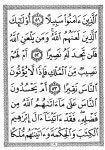 الَّذِينَ ءَامَنُوا سَبِيلًا ٥١ أُولَٰئِكَ
الَّذِينَ لَعَنَهُمُ اللَّهُ وَمَن يَلْعَنِ اللَّهُ
فَلَن تَجِدَ لَهُ نَصِيرًا ٥٢ أَمْ لَهُمْ
نَصِيبٌ مِّنَ الْمُلْكِ فَإِذًا لَّا يُؤْتُونَ
النَّاسَ نَقِيرًا ٥٣ أَمْ يَحْسُدُونَ
النَّاسَ عَلَىٰ مَا ءَاتَىٰهُمُ اللَّهُ
مِن فَضْلِهِ فَقَدْ ءَاتَيْنَا ءَالَ إِبْرَٰهِيمَ
الْكِتَٰبَ وَالْحِكْمَةَ وَءَاتَيْنَٰهُم مُّلْكًا